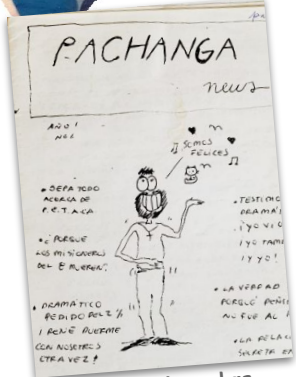 PACHANGA
news
AÑO 1
Nº1
SOMOS
FELICES
• SEPA TODO
ACERCA DE
P.E.T.A.CA.
• ¿PORQUE
LOS MISIONEROS
DEL
MUEREN?
• DRAMÁTICO
PEDIDO DEL 2%
¡RENÉ DUERME
CON NOSOTROS
OTRA VEZ!
• TESTIMO
DRAMÁ
¡YO VIO
¡YO TAMB
¡Y YO!
• LA VERDAD
PORQUÉ
NO FUE AL
• LA RELAC
SECRETA EN